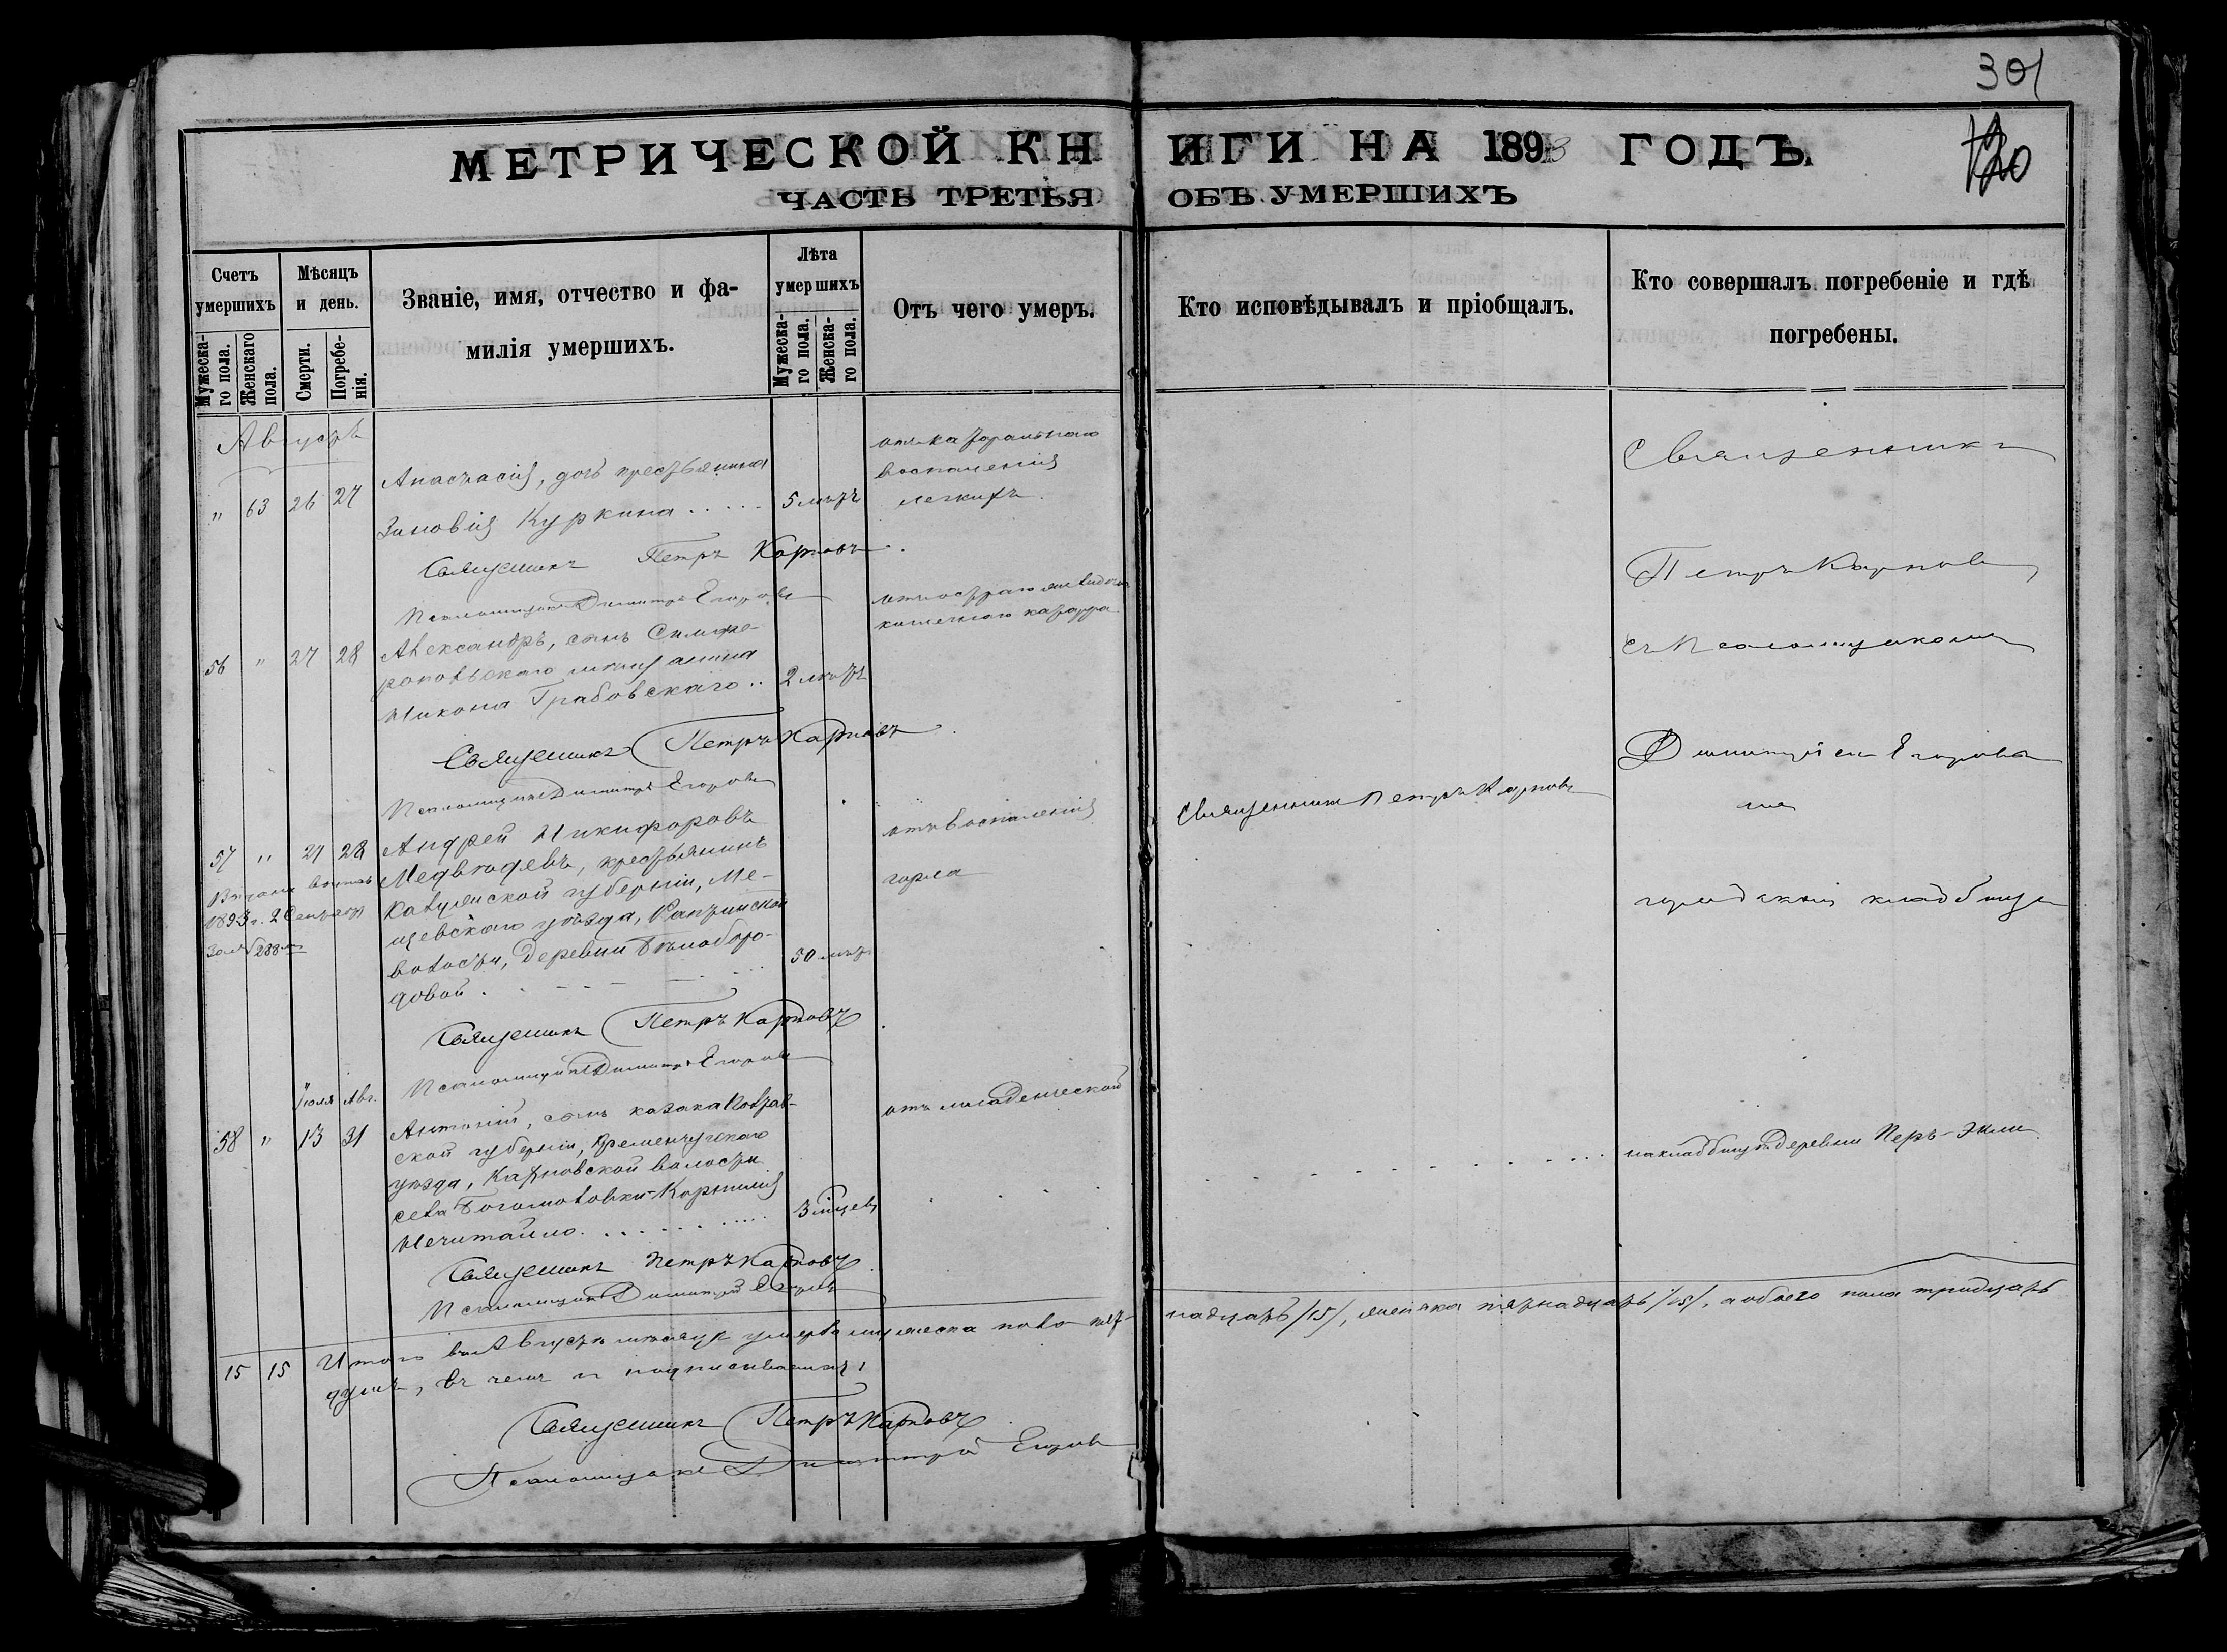 301
МЕТРИЧЕСКОЙ КНИГИ НА 1893 ГОДЪ.
120
ЧАСТЬ ТРЕТЬЯ ОБЪ УМЕРШИХЪ
Счетъ умершихъ
Мужеска-
го пола.
Женскаго
пола.
Мѣсяцъ
и день.
Смерти.
Погребе-
нія.
Званіе, имя, отчество и фа-
милія умершихъ.
Лѣта
умершихъ
Мужеска-
го пола.
Женска-
го пола.
Отъ чего умеръ.
Кто исповѣдывалъ и пріобщалъ.
Кто совершалъ погребеніе и гдѣ
погребены.
Августъ
" 63 26 27
Анастасія, дочь крестьянина
Зиновія Куркина . . . . .
5 лѣтъ
отъ катарральнаго
воспаленія
легкихъ.
Священникъ Петръ Карповъ.
Псаломщикъ Димитрій Егоровъ
56 " 27 28
Александръ, сынъ Симфе-
ропольскаго мѣщанина
Никона Грабовскаго . .
2 лѣтъ
отъ остраго
кишечнаго катарра
Священникъ Петръ Карповъ.
Псаломщикъ Димитрій Егоровъ
57 " 27 28
1893 г. 2 Сентября
за № 288
Андрей Никифоровъ
Медвѣдевъ, крестьянинъ
Калужской губерніи, Ме-
щевскаго уѣзда,
волости, деревни Бѣлоборо-
довой . . .
50 лѣтъ
отъ воспаленія
горла
Священникъ Петръ Карповъ
Священникъ Петръ Карповъ.
Псаломщикъ Димитрій Егоровъ
Іюля Авг.
58 " 13 31
Антоній, сынъ казака Полтав-
ской губерніи, Кременчугскаго
уѣзда,
волости
села Богомоловки Корнилія
Нечитайло. . . . .
3 мѣсяцев
отъ младенческой
Священникъ Петръ Карповъ.
Псаломщикъ Димитрій Егоровъ
Священникъ
Петръ Карповъ
съ Псаломщикомъ
Димитріемъ Егоровы
мъ
городскомъ кладбищѣ
на кладбищѣ деревни
15 15 Итого въ Августѣ мѣсяцѣ умерло мужеска пола пят-надцать /15/, женска пятнадцать /15/, а обоего пола тридцать
душъ, въ чемъ и подписываемся:
Священникъ Петръ Карповъ.
Псаломщикъ Димитрій Егоровъ